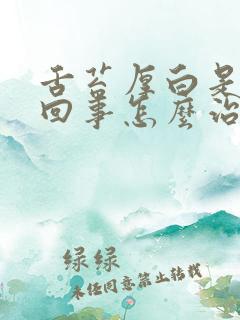 舌苔厚白是
回事怎麼治
绿绿
未经同意禁止转载